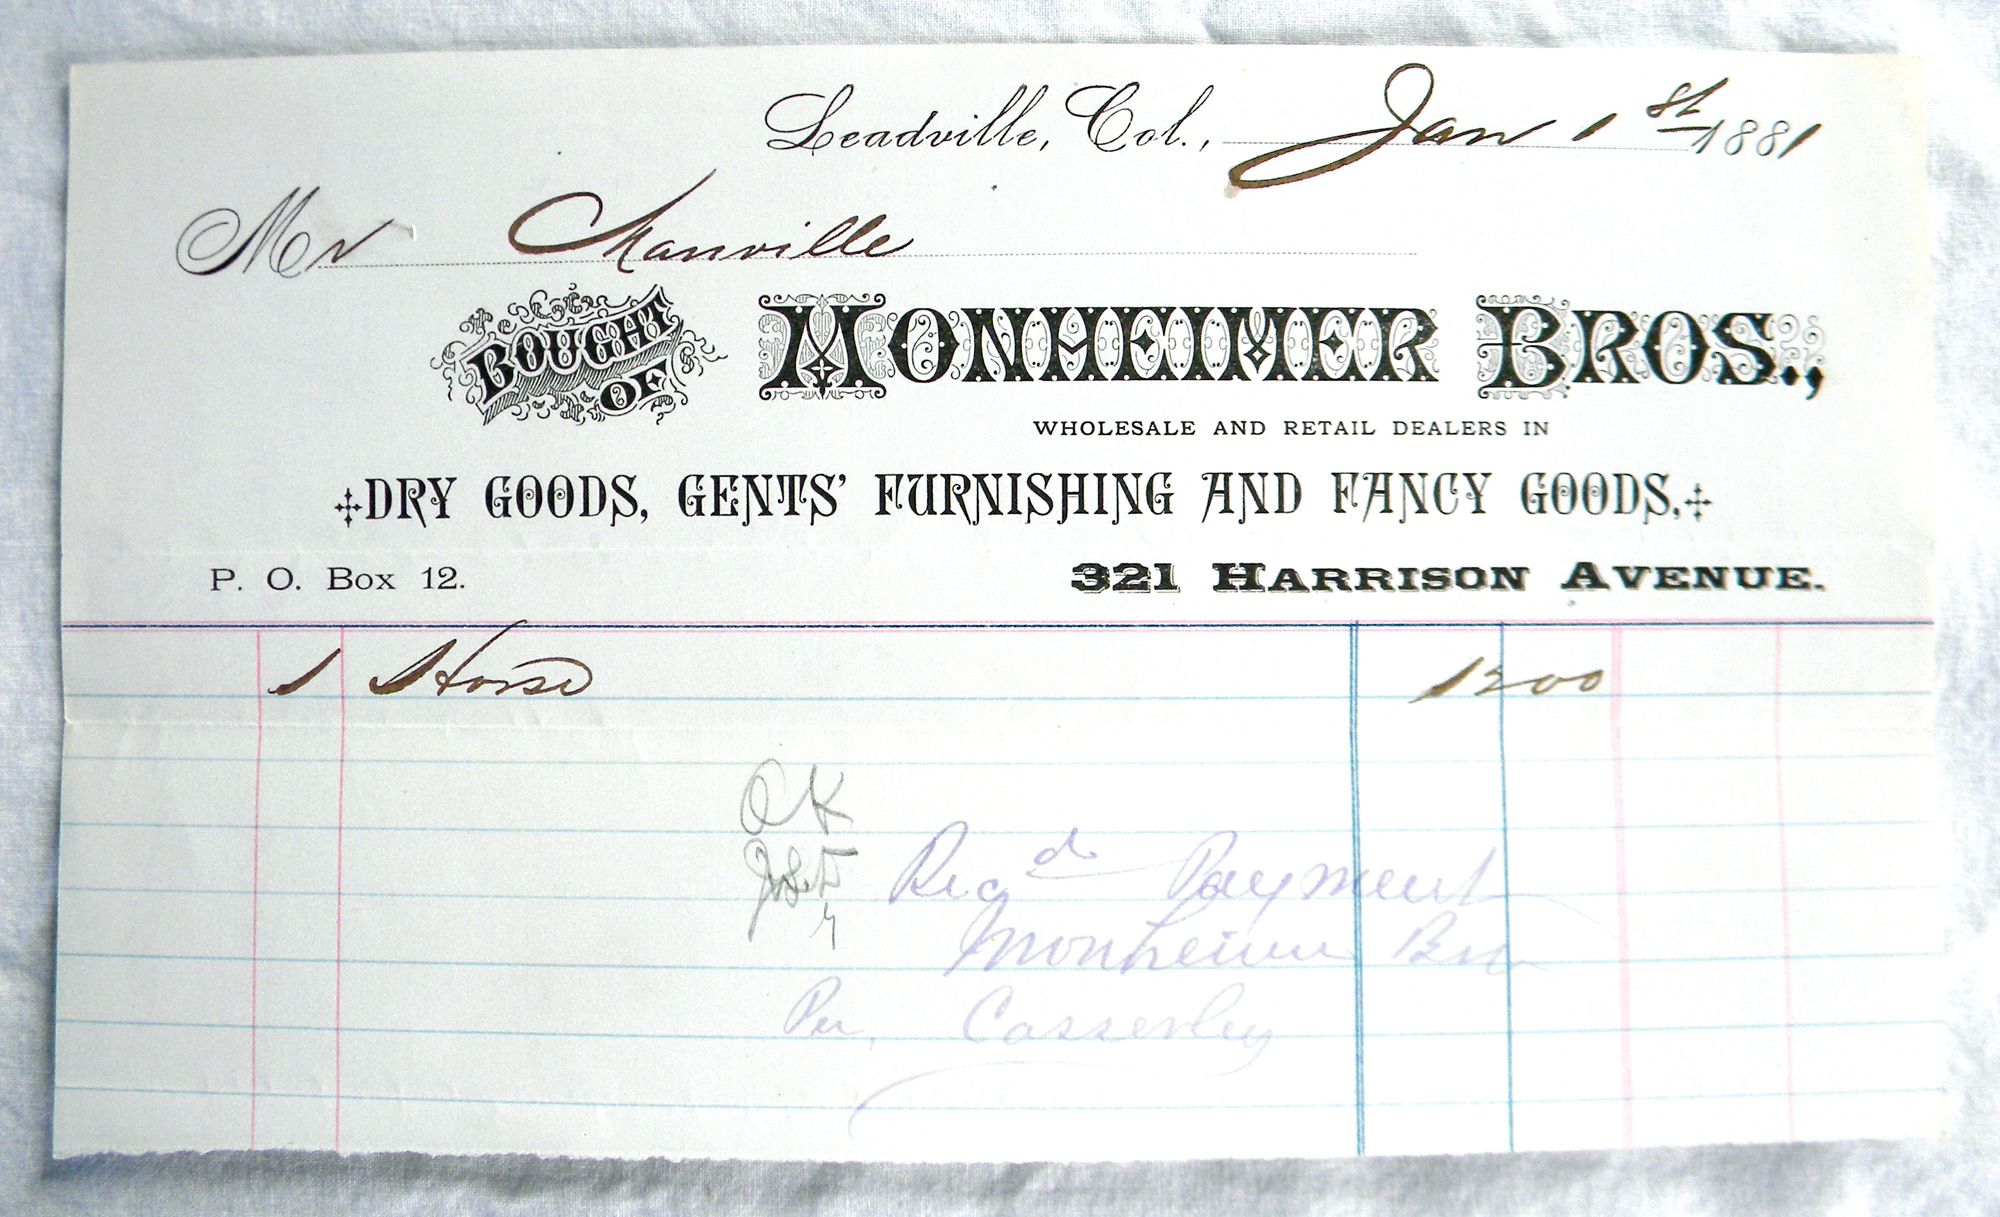 Leadville, Col., Jan 1st 1881
Mr Manville
BOUGHT OF MONHEIMER BROS.,
WHOLESALE AND RETAIL DEALERS IN
DRY GOODS, GENTS' FURNISHING AND FANCY GOODS,
P. O. Box 12. 321 HARRISON AVENUE.
1 Horse 1200
OK
Recd Payment
Monheimer Bros
Per, Casserley